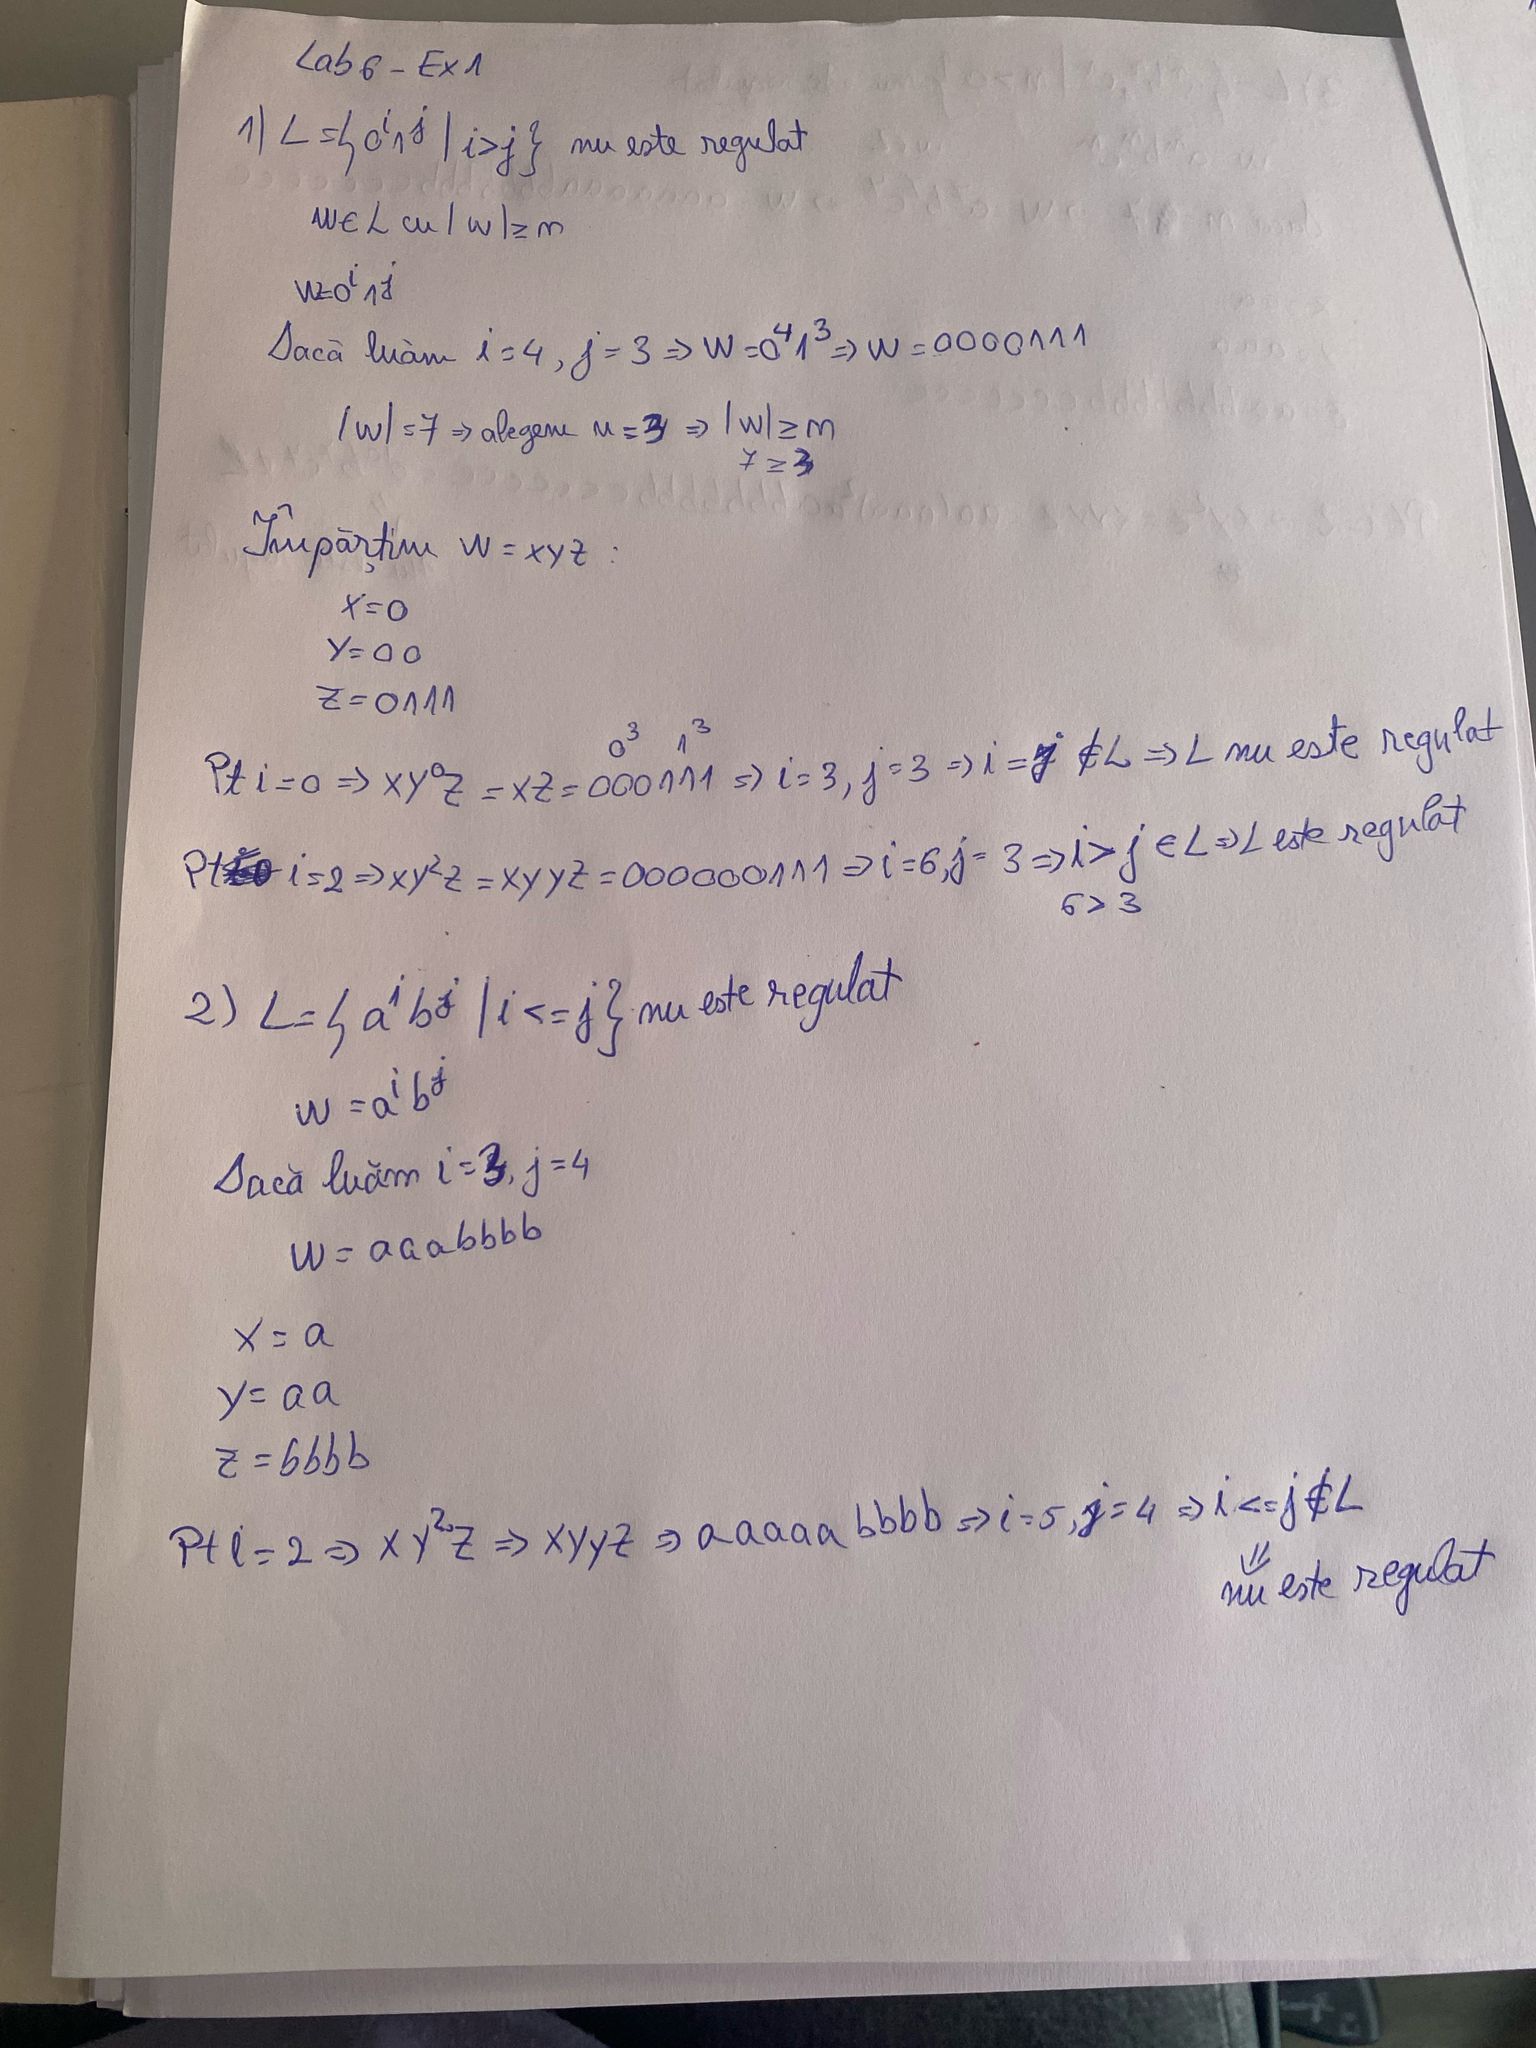 Lab 6 - Ex 1
1) L = { 0^i 1^j | i>j } nu este regulat
w∈L cu |w| ≥ n
w=0^i 1^j
Dacă luăm i=4, j=3 => W=0^4 1^3 => W=0000111
|w|=7 => alegem n=3 => |w| ≥ n
7 ≥ 3
Împărțim W = xyz :
X=0
Y=00
Z=0111
0^3 1^3
Pt i=0 => xy^0z = xz = 000111 => i=3, j=3 => i=j ∉L => L nu este regulat
Pt i=2 => xy^2z = xyyz = 000000111 => i=6, j=3 => i>j ∈L => L este regulat
6>3
2) L = { a^i b^j | i <= j } nu este regulat
w = a^i b^j
Dacă luăm i=3, j=4
W = aaabbbb
X = a
Y = aa
Z = bbbb
Pt i=2 => xy^2z => xyyz => aaaaabbbb => i=5, j=4 => i<=j ∉L
⇓
nu este regulat